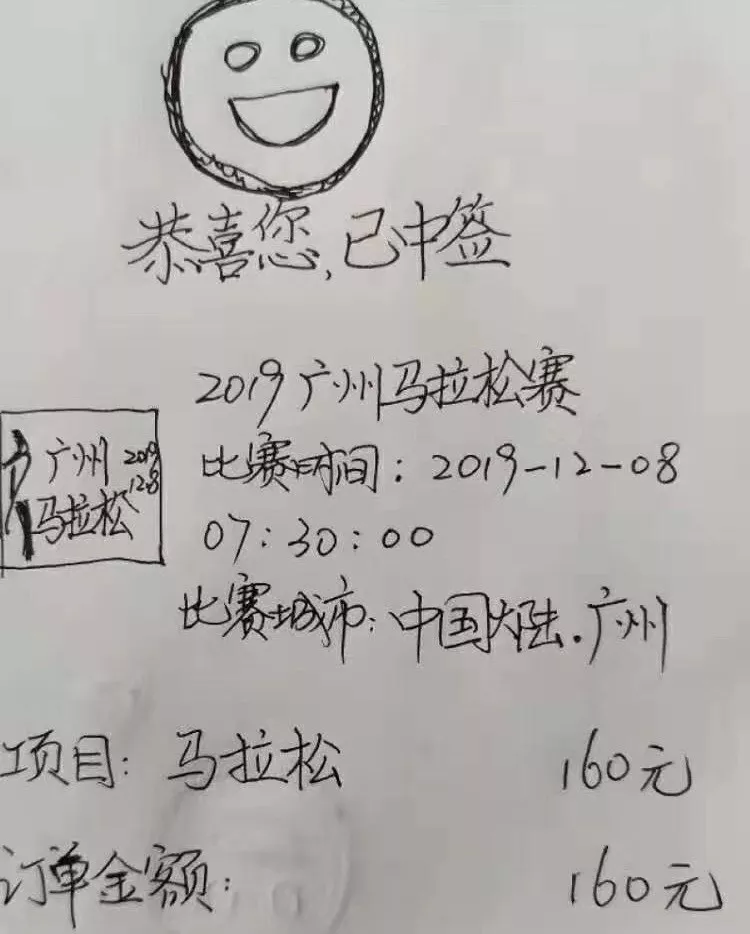 恭喜您,已中签
2019广州马拉松赛
比赛时间:2019-12-08
07:30:00
比赛城市:中国大陆.广州
广州 2019
马拉松 12.8
项目:马拉松 160元
订单金额: 160元